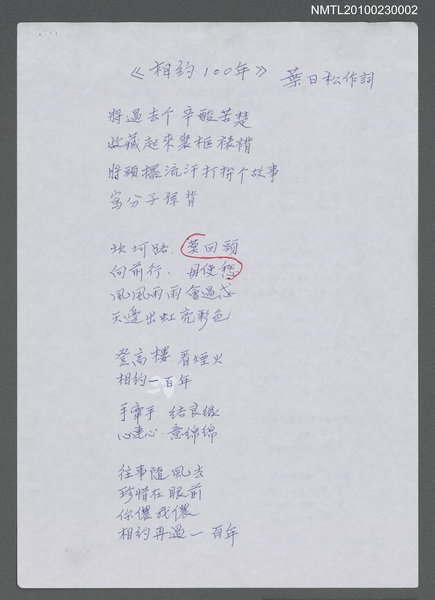 NMTL20100230002
《相約100年》 葉日松作詞
將過去个辛酸苦楚
收藏起來裝框裱褙
將頭擺流汗打拚个故事
寫分子孫背
坎坷路，莫回頭
向前行，毋使愁
風風雨雨會過忒
天邊出虹亮彩色
登高樓 看煙火
相約一百年
手牽手 結良緣
心連心 意綿綿
往事隨風去
珍惜在眼前
你儂我儂
相約再過一百年